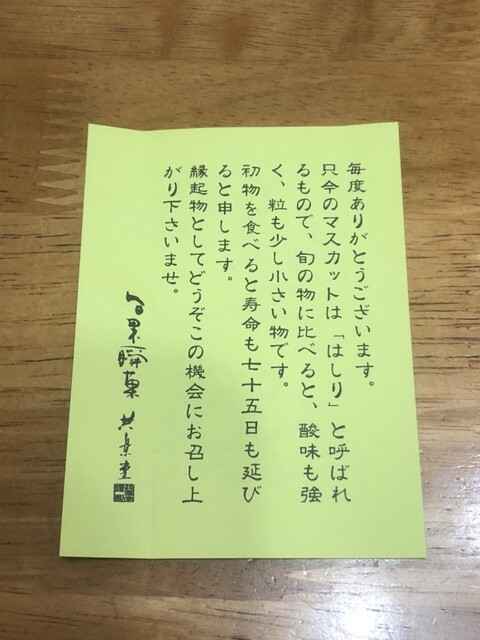 毎度ありがとうございます。
只今のマスカットは「はしり」と呼ばれ
るもので、旬の物に比べると、酸味も強
く、粒も少し小さい物です。
初物を食べると寿命も七十五日も延び
ると申します。
縁起物としてどうぞこの機会にお召し上
がり下さいませ。
旬果瞬菓 共楽堂